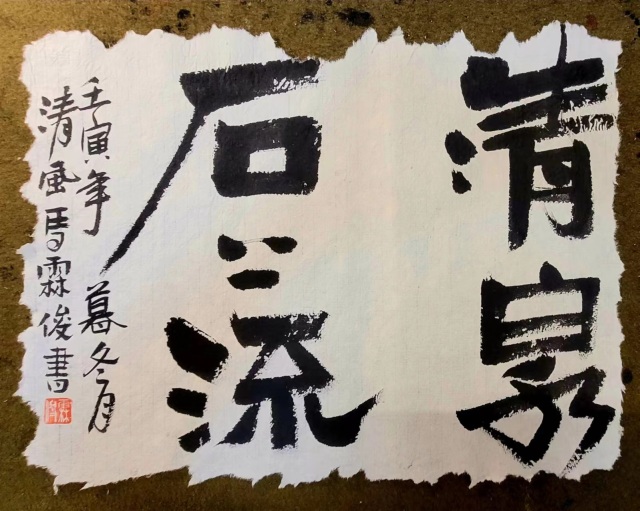 清泉
石上流
壬寅年 暮冬月
清風馬霖俊書